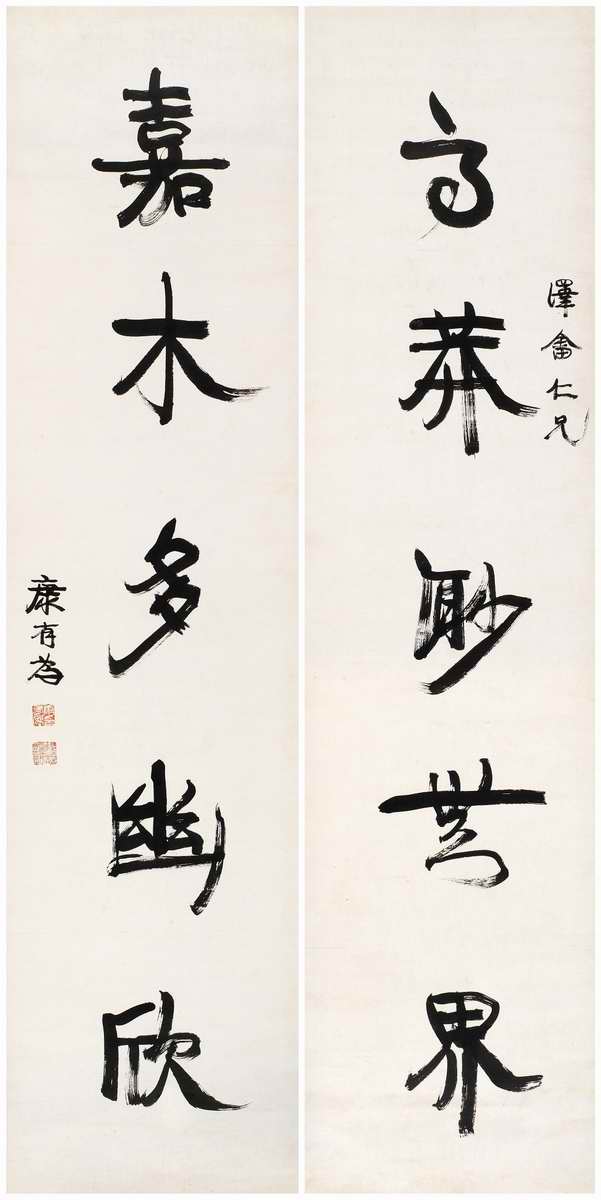 澤畬仁兄
高莽眇世界
嘉木多幽欣
康有為